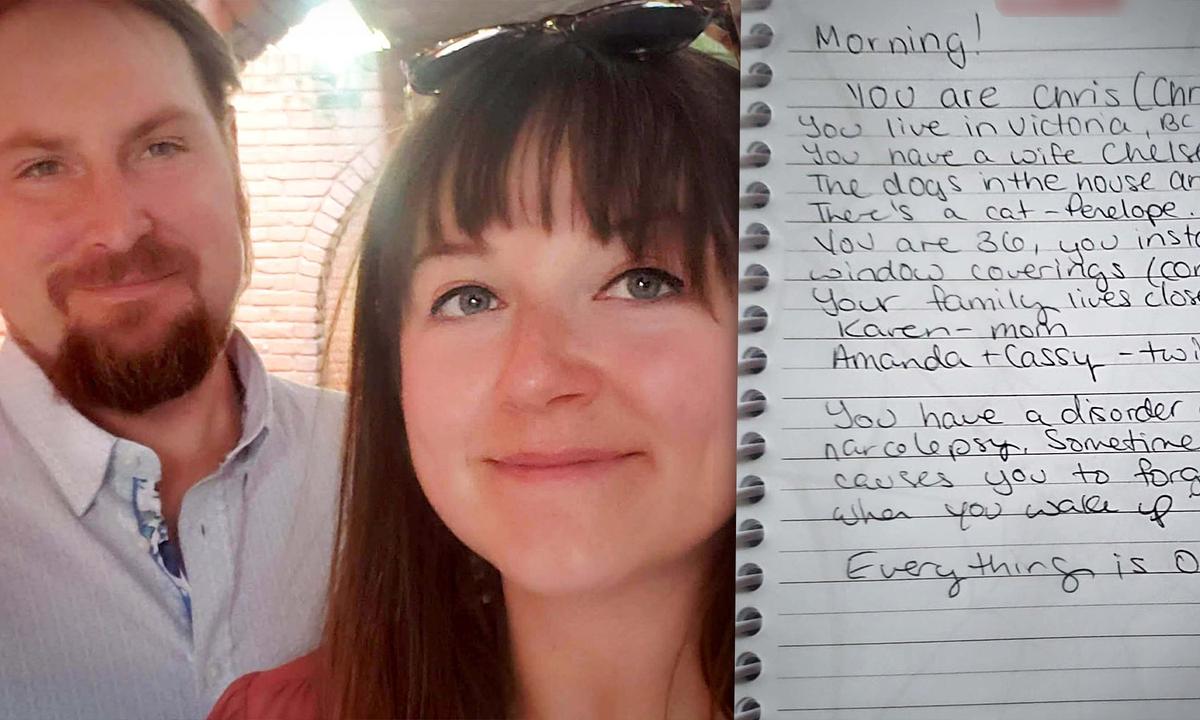 Morning!
You are Chris (Chr
You live in Victoria, BC
You have a wife Chelse
The dogs in the house ar
There's a cat - Penelope.
You are 36, you insta
window coverings (con
Your family lives close
Karen - mom
Amanda + Cassy - twi
You have a disorder
narcolepsy. Sometime
causes you to forg
when you wake up
Everything is O